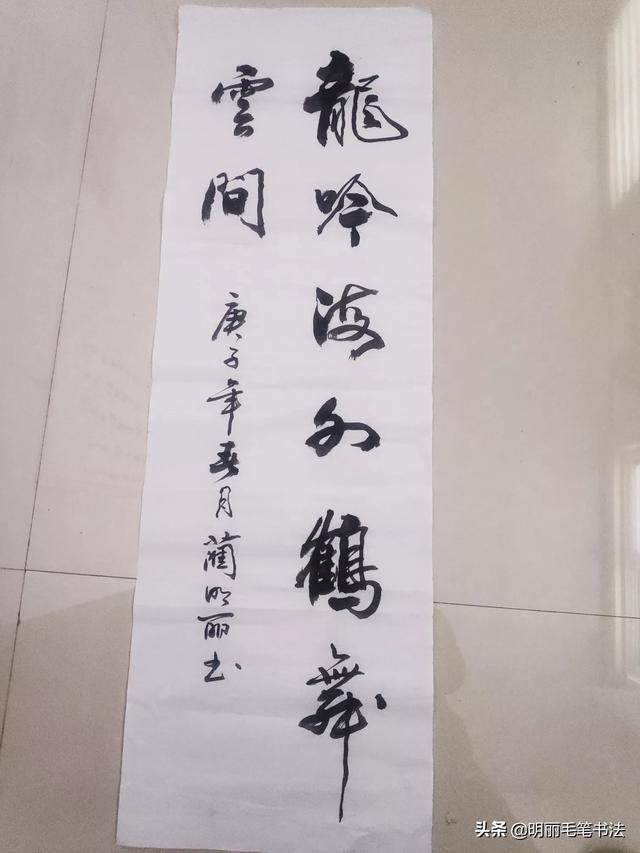 龍吟海外鶴舞
雲間
庚子年春月蔺明丽书
头条 @明丽毛笔书法